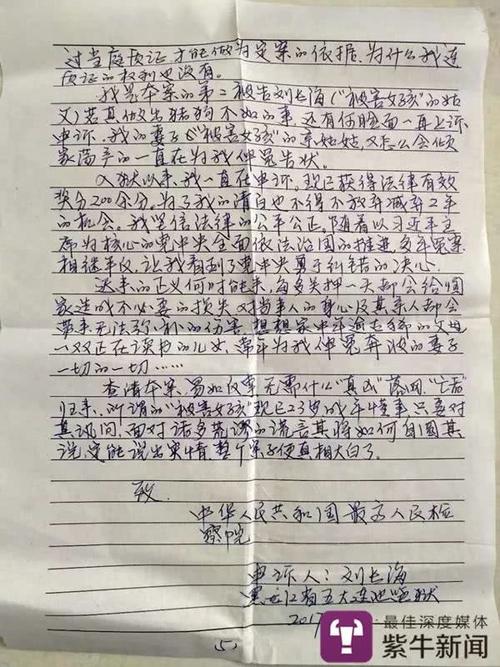 过当庭质证,才能做为定案的依据,为什么我连
质证的权利也没有。
我是本案的第二被告刘长海("被害女孩"的姑
父)若真做出猪狗不如的事,还有何脸面一再上诉
申诉,我的妻子("被害女孩"的亲姑姑)又怎么会倾
家荡产的一直在为我伸冤告状。
入狱以来,我一直在申诉,现已获得法律有效
奖分200余分,为了我的清白也不得不放弃减去2年
的机会。我坚信法律的公平公正,随着以习近平主
席为核心的党中央全面依法治国的推进,多年冤案
相继平反,让我看到了党中央勇于纠错的决心。
迟来的正义何时能来,每多关押一天都会给国
家造成不必要的损失,对当事人的身心及其亲人都会
带来无法弥补的伤害,想想家中年迈老多病的父母
一双正在读书的儿女,常年为我伸冤奔波的妻子
一切的一切……
查清本案,易如反掌,无需什么"真凶"落网,"亡者"
归来,所谓的"被害女孩"现已23岁的成年懂事,只要对
其讯问,面对诸多荒谬的谎言其将如何自圆其
说,定能说出实情,整个案子便真相大白了。
致
中华人民共和国最高人民检
察院
申诉人:刘长海
黑龙江省五大连池监狱
2017
(5)
最佳深度媒体
紫牛新闻